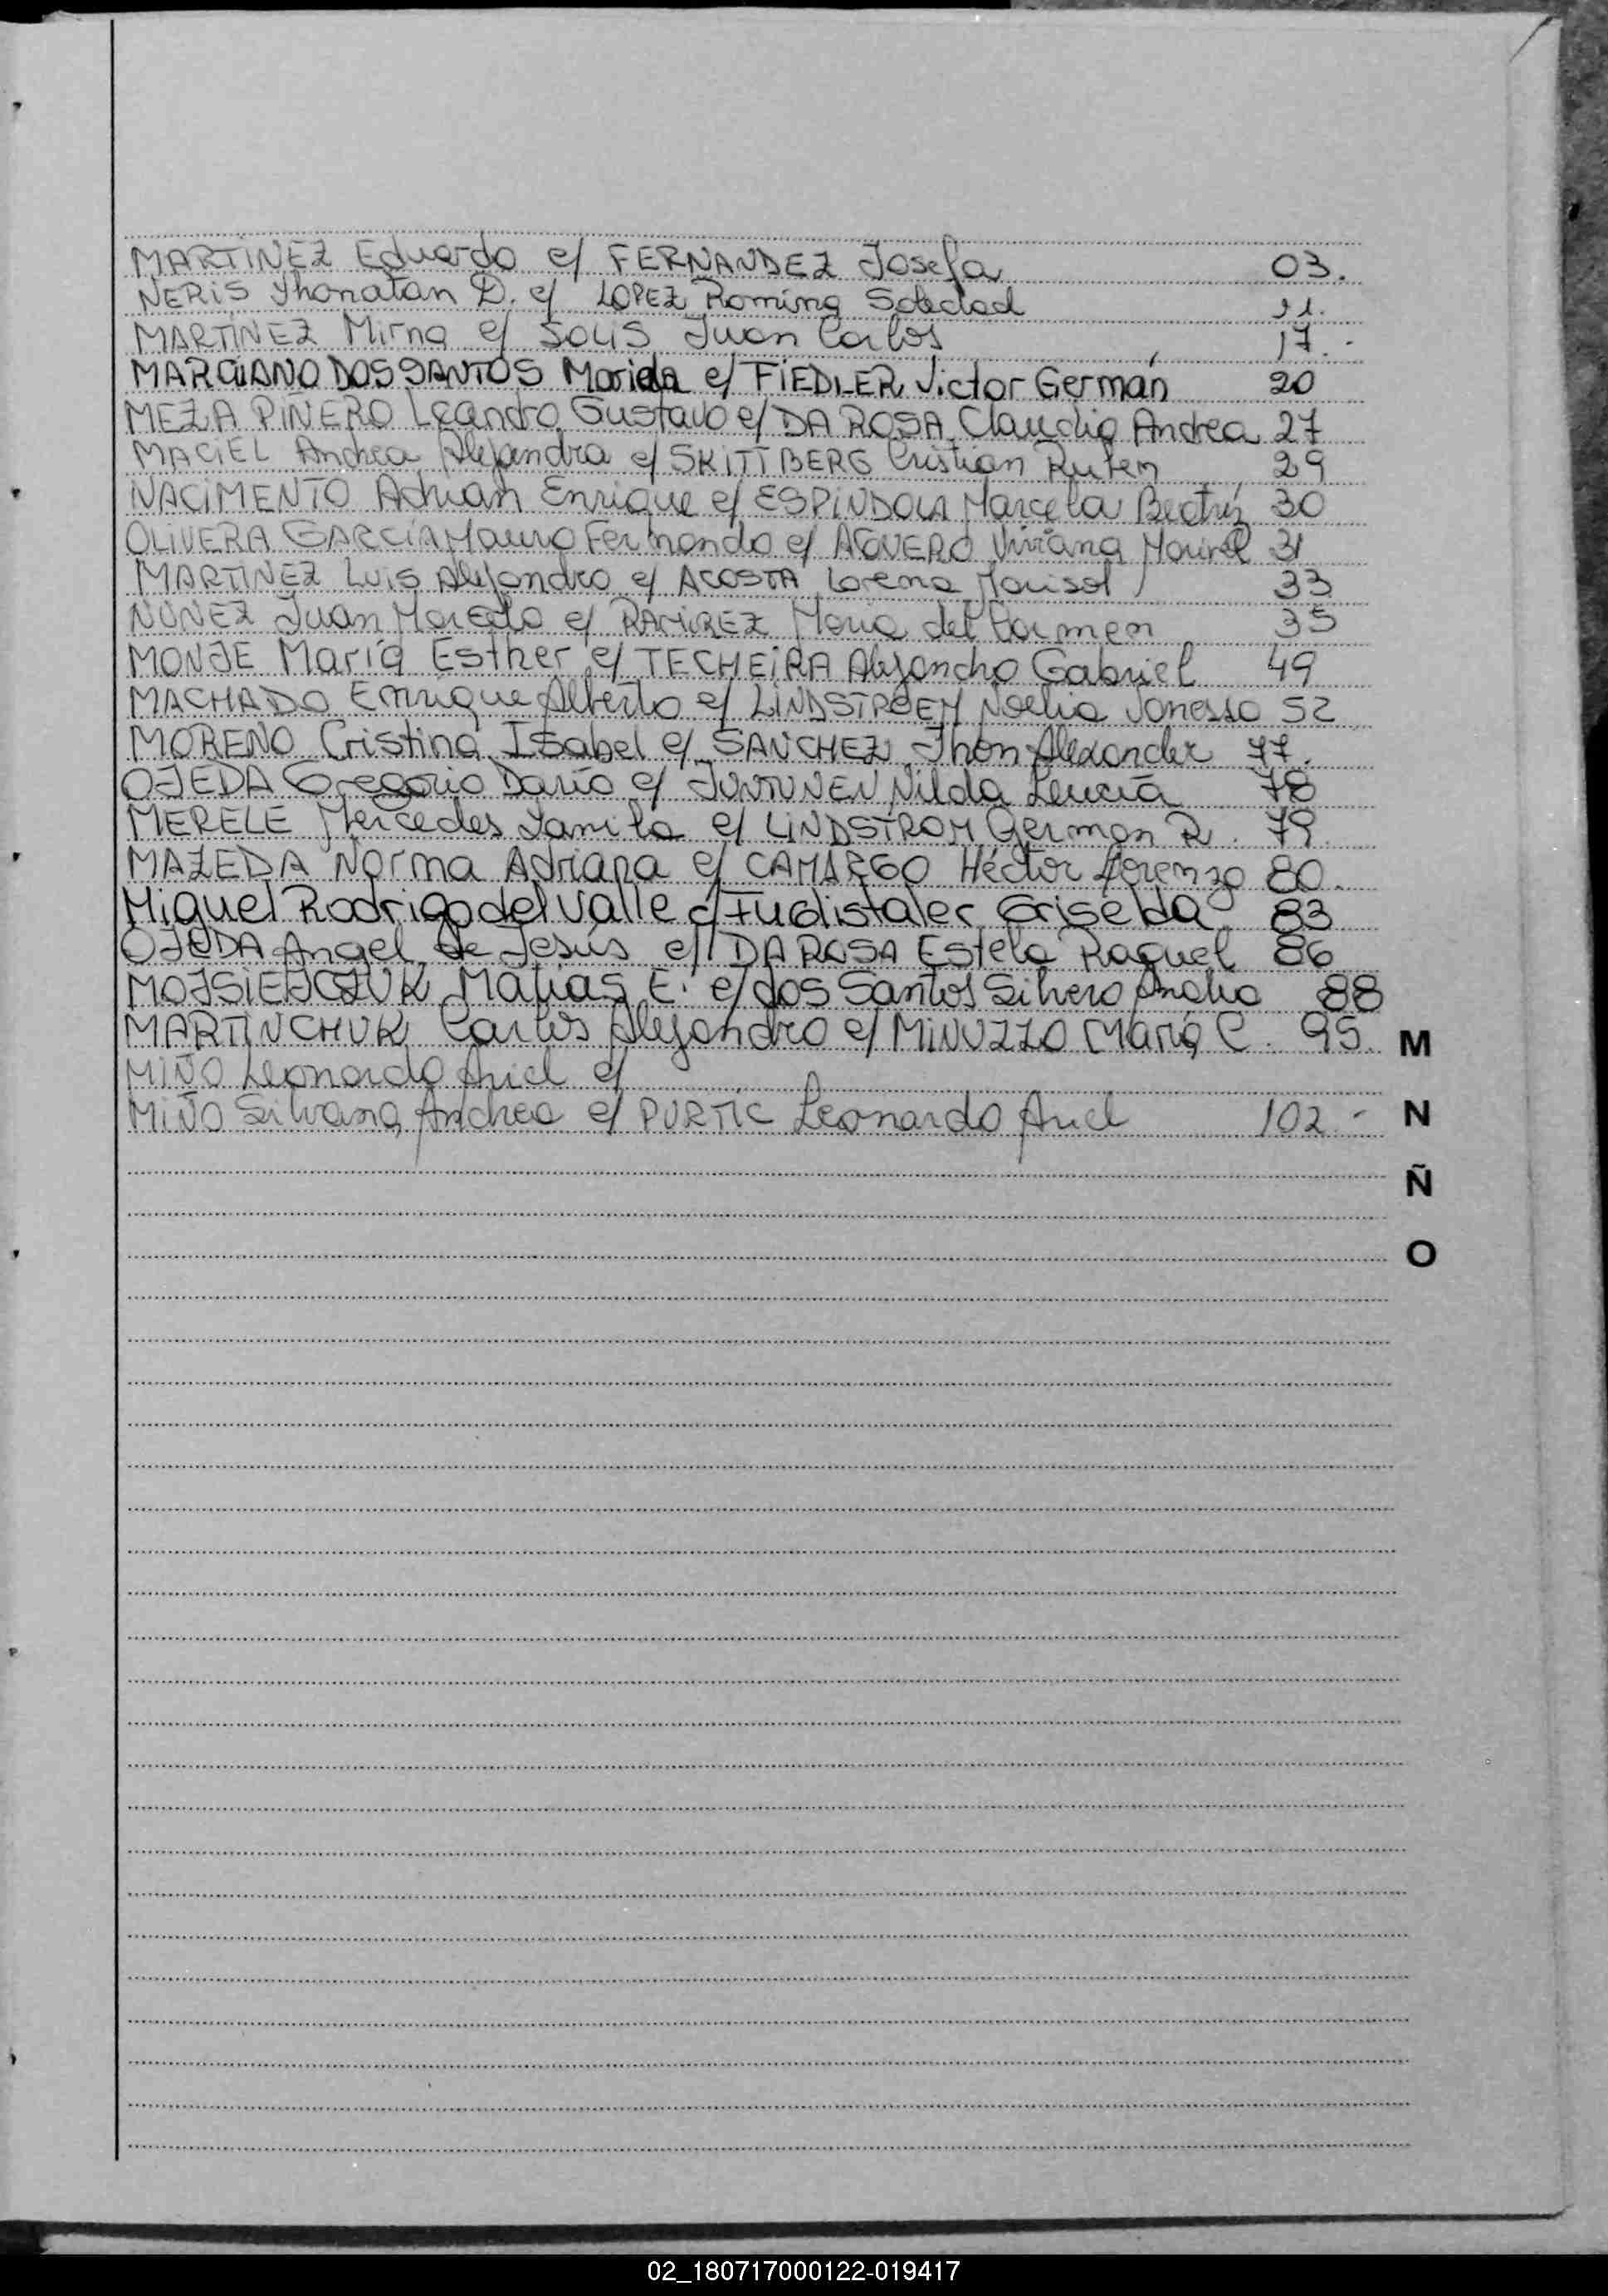 MARTINEZ Eduardo c/ FERNANDEZ Josefa 03.
NERIS Jhonatan D. c/ LOPEZ Romina Soledad 11.
MARTÍNEZ Mirna c/ SOLIS Juan Carlos 17.-
MARCIANO DOS SANTOS Mariela c/ FIEDLER Víctor Germán 20
MEZA PIÑERO Leandro Gustavo c/ DA ROSA Claudia Andrea 27
MACIEL Andrea Alejandra c/ SKITTBERG Cristian Ruben 29
NACIMENTO Adrian Enrique c/ ESPÍNDOLA Marcela Beatríz 30
OLIVERA GARCÍA Mauro Fernando c/ AGUERO Viviana 31
MARTINEZ Luis Alejandro c/ ACOSTA Lorena Marisol 33
NUÑEZ Juan Marcelo c/ RAMIREZ Maria del Carmen 35
MONJE María Esther c/ TECHEIRA Alejandro Gabriel 49
MACHADO Enrique Alberto c/ LINDSTROEM Noelia Vanessa 52
MORENO Cristina Isabel c/ SANCHEZ Jhon Alexander 77.
OJEDA Gregorio Darío c/ JUNTUNEN Nilda Leucia 78
MERELE Mercedes Yamila c/ LINDSTROM German R. 79.
MAZEDA Norma Adriana c/ CAMARGO Héctor Lorenzo 80.
Miguel Rodrigo del Valle c/ Fudistaler Griselda 83
OJEDA Angel De Jesús c/ DA ROSA Estela Raquel 86
MOJSIEJCZUK Matias E. c/ dos Santos Silvero Analia 88
MARTINCHUK Carlos Alejandro c/ MINUZZO María C. 95.
MIÑO Leonardo Ariel c/
MIÑO Silvana Andrea c/ PURTIC Leonardo Ariel 102.-
M
N
Ñ
O
02_180717000122-019417